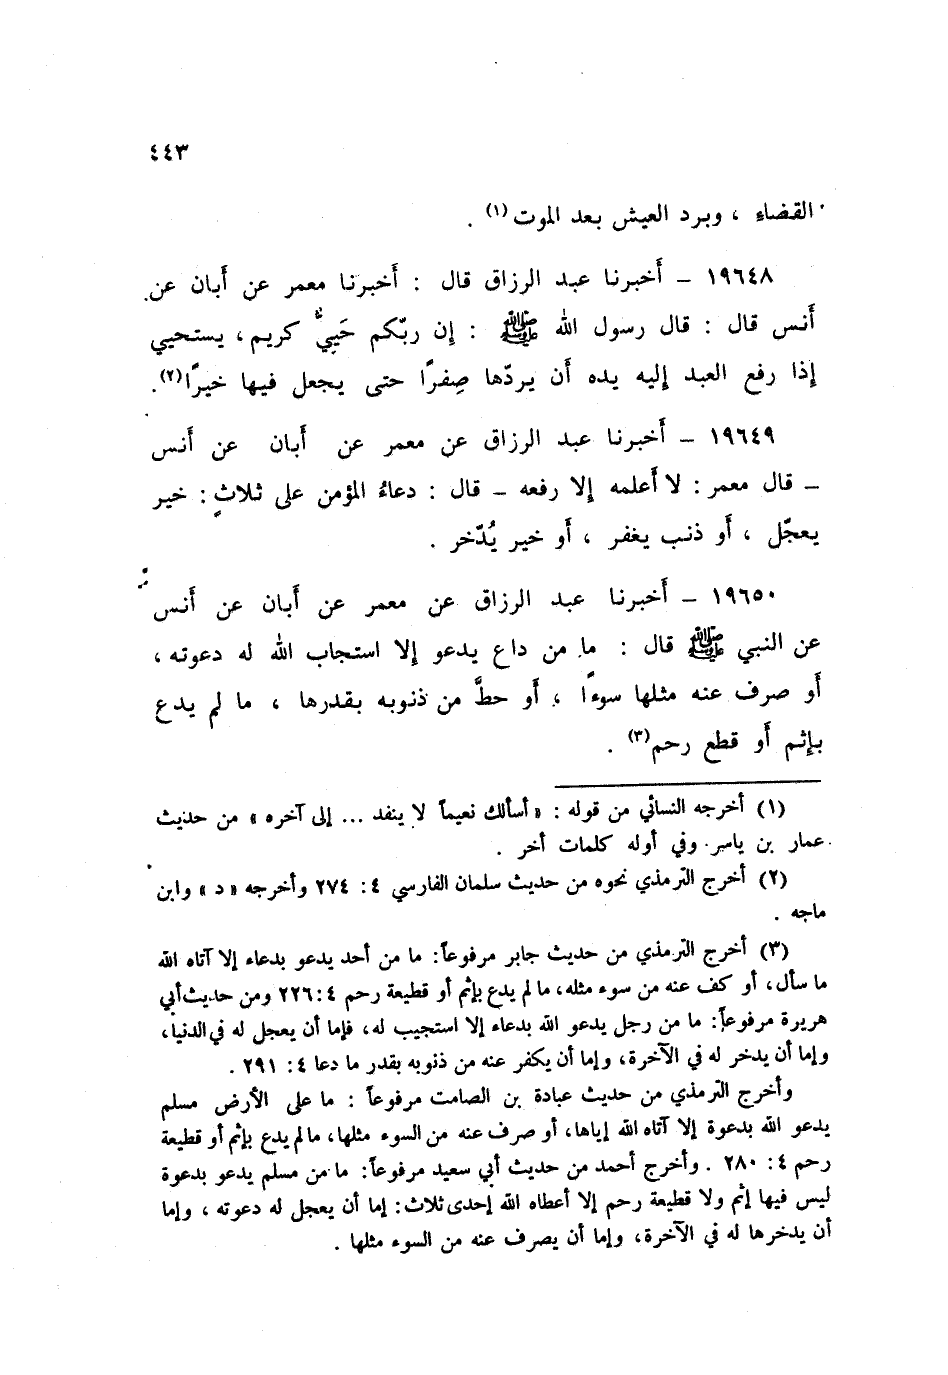 ٤٤٣
القضاء ، وبرد العيش بعد الموت (١) .
١٩٦٤٨ – أخبرنا عبد الرزاق قال : أخبرنا معمر عن أبان عن
أنس قال : قال رسول الله ﷺ : إن ربّكم حَيِيٌّ كريم ، يستحيي
إذا رفع العبد إليه يده أن يردّها صِفرًا حتى يجعل فيها خيرًا (٢) .
١٩٦٤٩ – أخبرنا عبد الرزاق عن معمر عن أبان عن أنس
– قال معمر : لا أعلمه إلا رفعه – قال : دعاءُ المؤمن على ثلاثٍ : خير
يعجّل ، أو ذنب يغفر ، أو خير يُدّخر .
١٩٦٥٠ – أخبرنا عبد الرزاق عن معمر عن أبان عن أنس
عن النبي ﷺ قال : ما من داع يدعو إلا استجاب الله له دعوته ،
أو صرف عنه مثلها سوءًا ، أو حطَّ من ذنوبه بقدرها ، ما لم يدع
بإثم أو قطع رحم (٣) .
(١) أخرجه النسائي من قوله : « أسألك نعيماً لا ينفد ... إلى آخره » من حديث
عمار بن ياسر وفي أوله كلمات أخر .
(٢) أخرج الترمذي نحوه من حديث سلمان الفارسي ٤ : ٢٧٤ وأخرجه « د » وابن
ماجه .
(٣) أخرج الترمذي من حديث جابر مرفوعاً : ما من أحد يدعو بدعاء إلا آتاه الله
ما سأل ، أو كف عنه من سوء مثله ، ما لم يدع بإثم أو قطيعة رحم ٤ : ٢٢٦ ومن حديث أبي
هريرة مرفوعاً : ما من رجل يدعو الله بدعاء إلا استجيب له ، فإما أن يعجل له في الدنيا ،
وإما أن يدخر له في الآخرة ، وإما أن يكفر عنه من ذنوبه بقدر ما دعا ٤ : ٢٩١ .
وأخرج الترمذي من حديث عبادة بن الصامت مرفوعاً : ما على الأرض مسلم
يدعو الله بدعوة إلا آتاه الله إياها ، أو صرف عنه من السوء مثلها ، ما لم يدع بإثم أو قطيعة
رحم ٤ : ٢٨٠ . وأخرج أحمد من حديث أبي سعيد مرفوعاً : ما من مسلم يدعو بدعوة
ليس فيها إثم ولا قطيعة رحم إلا أعطاه الله إحدى ثلاث : إما أن يعجل له دعوته ، وإما
أن يدخرها له في الآخرة ، وإما أن يصرف عنه من السوء مثلها .